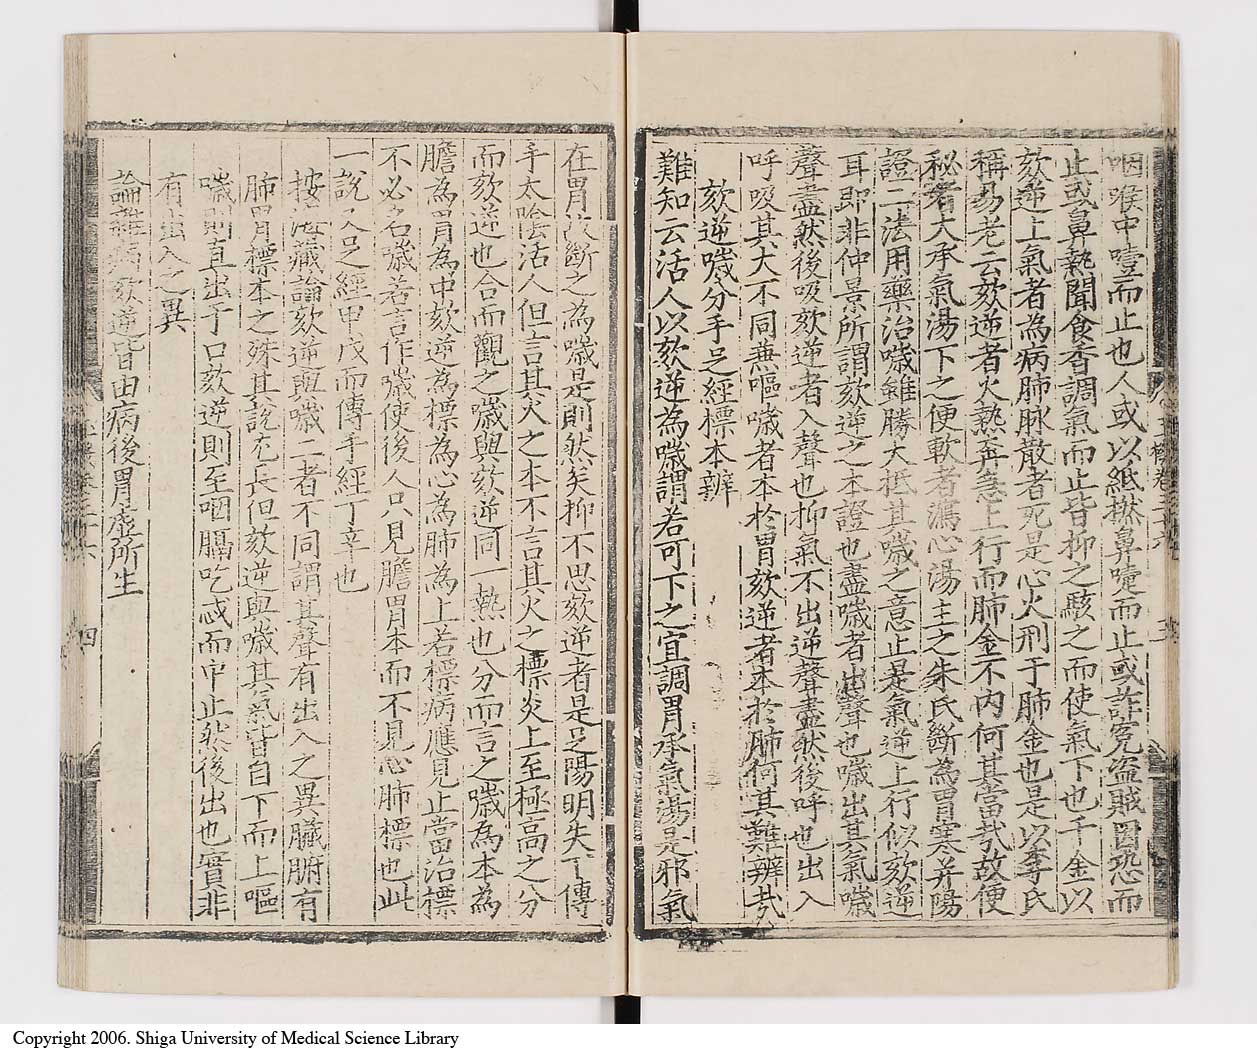 咽喉中噎而止也人或以紙撚鼻嚏而止或詐冤盗賊因恐而
止或鼻熱聞食香調氣而止皆抑之駭之而使氣下也千金以
欬逆上氣者為病肺脉散者死是心火刑于肺金也是以李氏
稱易老云欬逆者火熱奔急上行而肺金不内何其當哉故便
秘者大承氣湯下之便軟者瀉心湯主之朱氏斷為胃寒并陽
證二法用藥治噦雖勝大抵其噦之意止是氣逆上行似欬逆
耳即非仲景所謂欬逆之本證也盡噦者出聲也噦出其氣噦
聲盡然後吸欬逆者入聲也抑氣不出逆聲盡然後呼也出入
呼吸其大不同兼嘔噦者本於胃欬逆者本於肺何其難辨哉
欬逆噦分手足經標本辨
難知云活人以欬逆為噦謂若可下之宜調胃承氣湯是邪氣
在胃故斷之為噦是則然矣抑不思欬逆者是足陽明失下傳
手太陰活人但言其火之本不言其火之標炎上至極高之分
而欬逆也合而觀之噦與欬逆同一熱也分而言之噦為本為
膽為胃為中欬逆為標為心為肺為上若標病應見止當治標
不必名噦若言作噦使後人只見膽胃本而不見心肺標也此
一說又足經甲戊而傳手經丁辛也
按海藏論欬逆與噦二者不同謂其聲有出入之異臟腑有
肺胃標本之殊其說尤長但欬逆與噦其氣皆自下而上嘔
噦則直出于口欬逆則至咽膈吃忒而中止然後出也實非
有出入之異
論雜病欬逆皆由病後胃虛所生
四
Copyright 2006. Shiga University of Medical Science Library